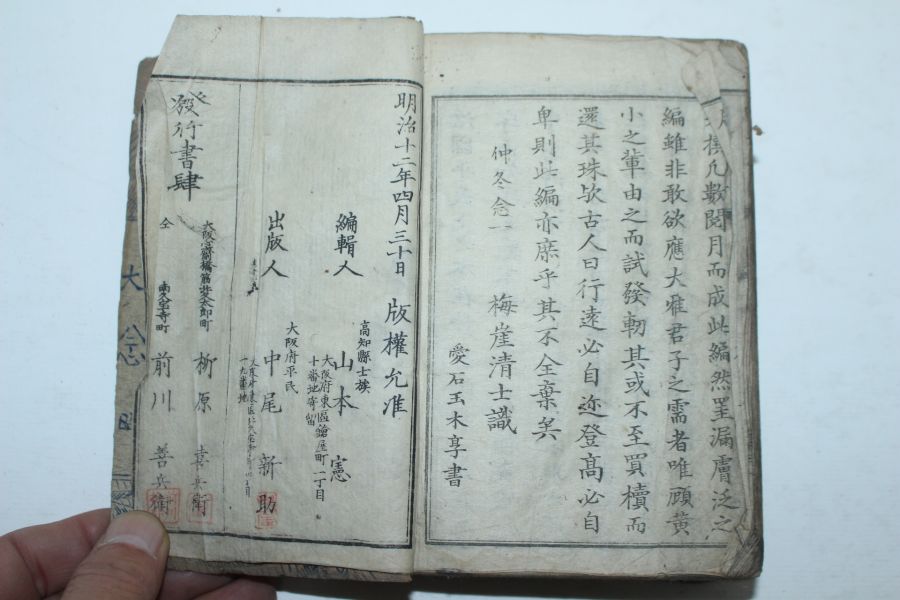 撰凡數閱月而成此編然罣漏膚泛之
編雖非敢欲應大雅君子之需者唯頋黄
小之輩由之而試發軔其或不至買櫝而
還其珠欤古人曰行遠必自迩登高必自
卑則此編亦庶乎其不全棄矣
仲冬念一 梅崖清士識
愛石玉木享書
明治十二年四月三十日 版權允准
編輯人
高知縣士族
大阪府東區鎗屋町一丁目
十番地寄留
山本憲
出版人
大阪府平民
中尾新助
發行書肆
大阪心齋橋筋
柳原喜兵衛
仝 南久宝寺町
前川善兵衛